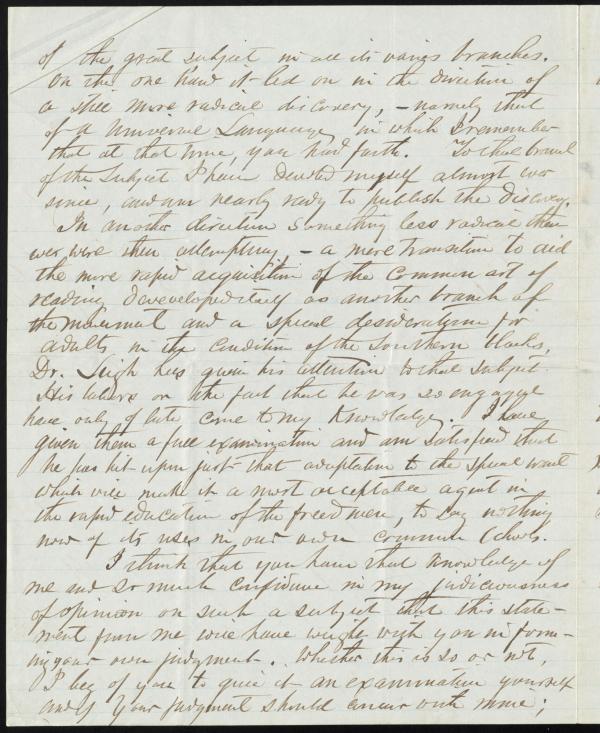 of the great subject in all its varios branches.
On the one hand it led on in the direction of
a still more radical discovery, – namely that
of a Universal Language, in which I remember
that at that time, you had faith. To that branch
of the Subject I have devoted myself almost ever
since, and am nearly ready to publish the discovery.
In another direction something less radical than
we were then attempting, – a mere transition to aid
the more rapid acquisition of the common art of
reading developed itself as another branch of
the movement and a special desideratum for
adults in the condition of the Southern blacks.
Dr. Leigh has given his attention to that subject.
His labors or the fact that he was so engaged
have only of late come to my Knowledge. I have
given them a full examination and am satisfied that
he has hit upon just that adaptation to the special want
which will make it a most acceptable agent in
the rapid education of the freed men, to say nothing
now of its uses in our own common Schools.
I think that you have that Knowledge of
me and so much confidence in my judiciousness
of opinion on such a subject that this state-
ment from me will have weight with you in form-
ing your own judgment. Whether this is so or not,
I beg of you to give it an examination yourself
and if your judgment should concur with mine;